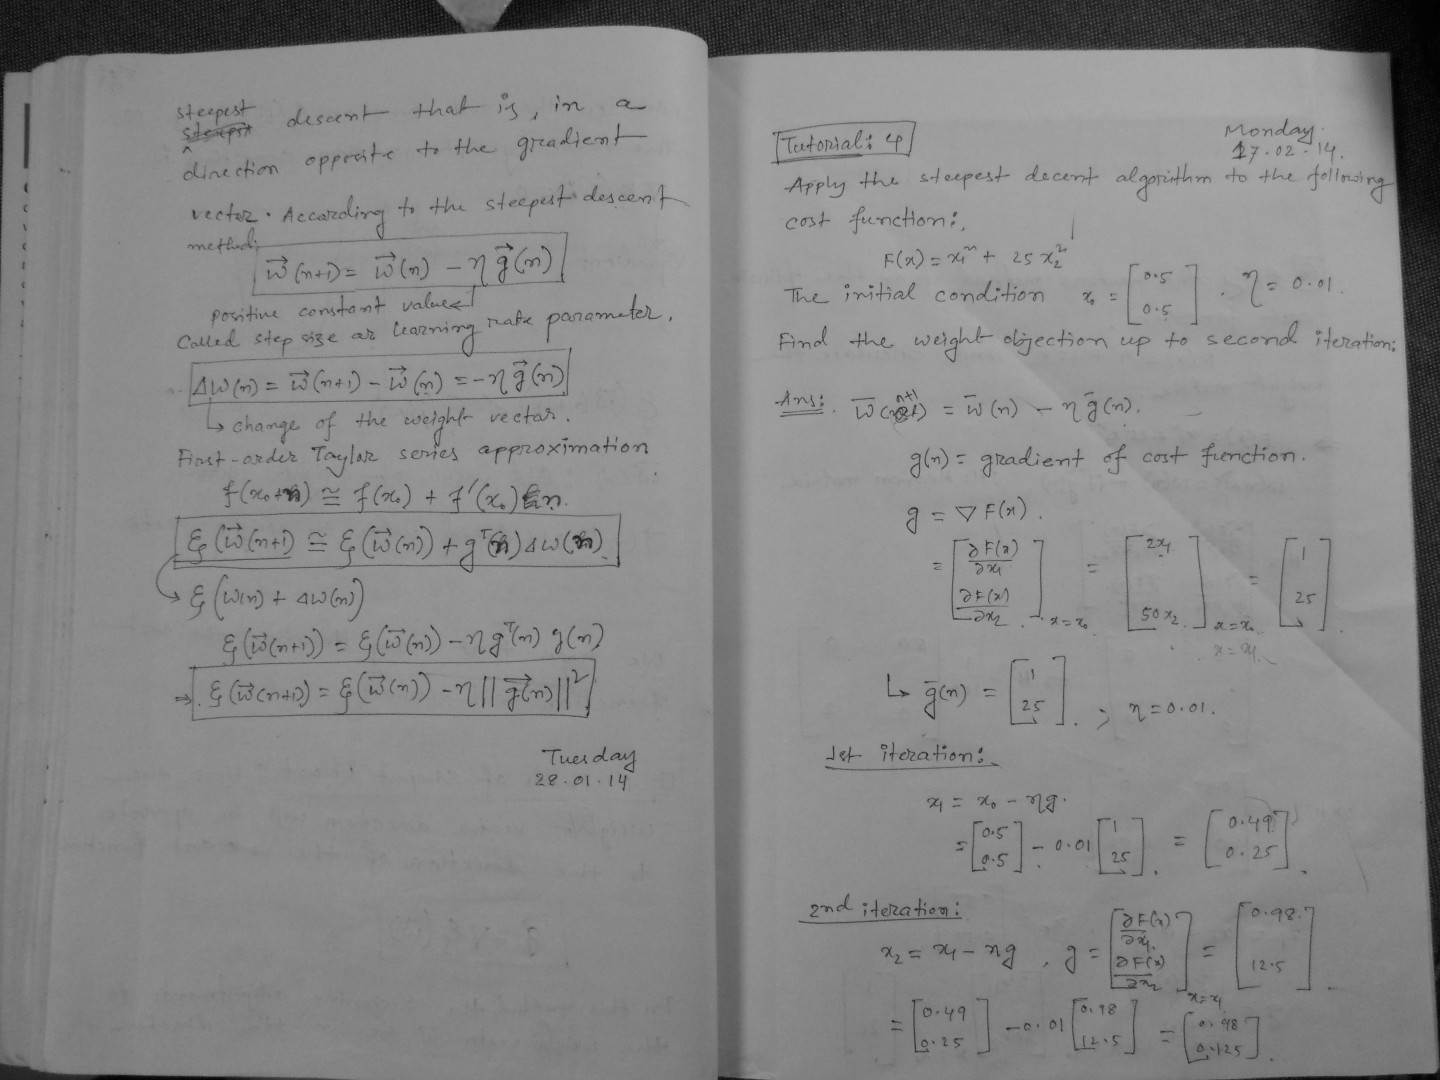 steepest
descent that is, in a
direction opposite to the gradient
vector. According to the steepest descent
method:
w⃗(n+1) = w⃗(n) − η g⃗(n)
positive constant value
Called step size or learning rate parameter.
Δw(n) = w⃗(n+1) − w⃗(n) = −η g⃗(n)
↳ change of the weight vector.
First-order Taylor series approximation
f(x₀+n) ≅ f(x₀) + f'(x₀) n.
ξ(w⃗(n+1)) ≅ ξ(w⃗(n)) + gᵀ(n) Δw(n)
↳ ξ(w(n) + Δw(n))
ξ(w⃗(n+1)) = ξ(w⃗(n)) − η gᵀ(n) g(n)
⇒ ξ(w⃗(n+1)) = ξ(w⃗(n)) − η ||g⃗(n)||²
Tuesday
28.01.14
Monday.
Tutorial: 4
17.02.14.
Apply the steepest decent algorithm to the following
cost function:
F(x) = x₁² + 25 x₂²
The initial condition x₀ = [0.5 0.5] . η = 0.01.
Find the weight objection up to second iteration:
Ans: w̄(n+1) = w̄(n) − η ḡ(n).
g(n) = gradient of cost function.
g = ∇F(x).
= [∂F(x)/∂x₁ ∂F(x)/∂x₂] x=x₀ = [2x₁ 50x₂] x=x₀ = [1 25].
x=x₁
↳ ḡ(n) = [1 25]. ; η = 0.01.
1st iteration:
x₁ = x₀ − ηg.
= [0.5 0.5] − 0.01 [1 25]. = [0.49 0.25].
2nd iteration:
x₂ = x₁ − ηg , g = [∂F(x)/∂x₁ ∂F(x)/∂x₂] x=x₁ = [0.98 12.5].
= [0.49 0.25] − 0.01 [0.98 12.5] = [0.48 0.125].